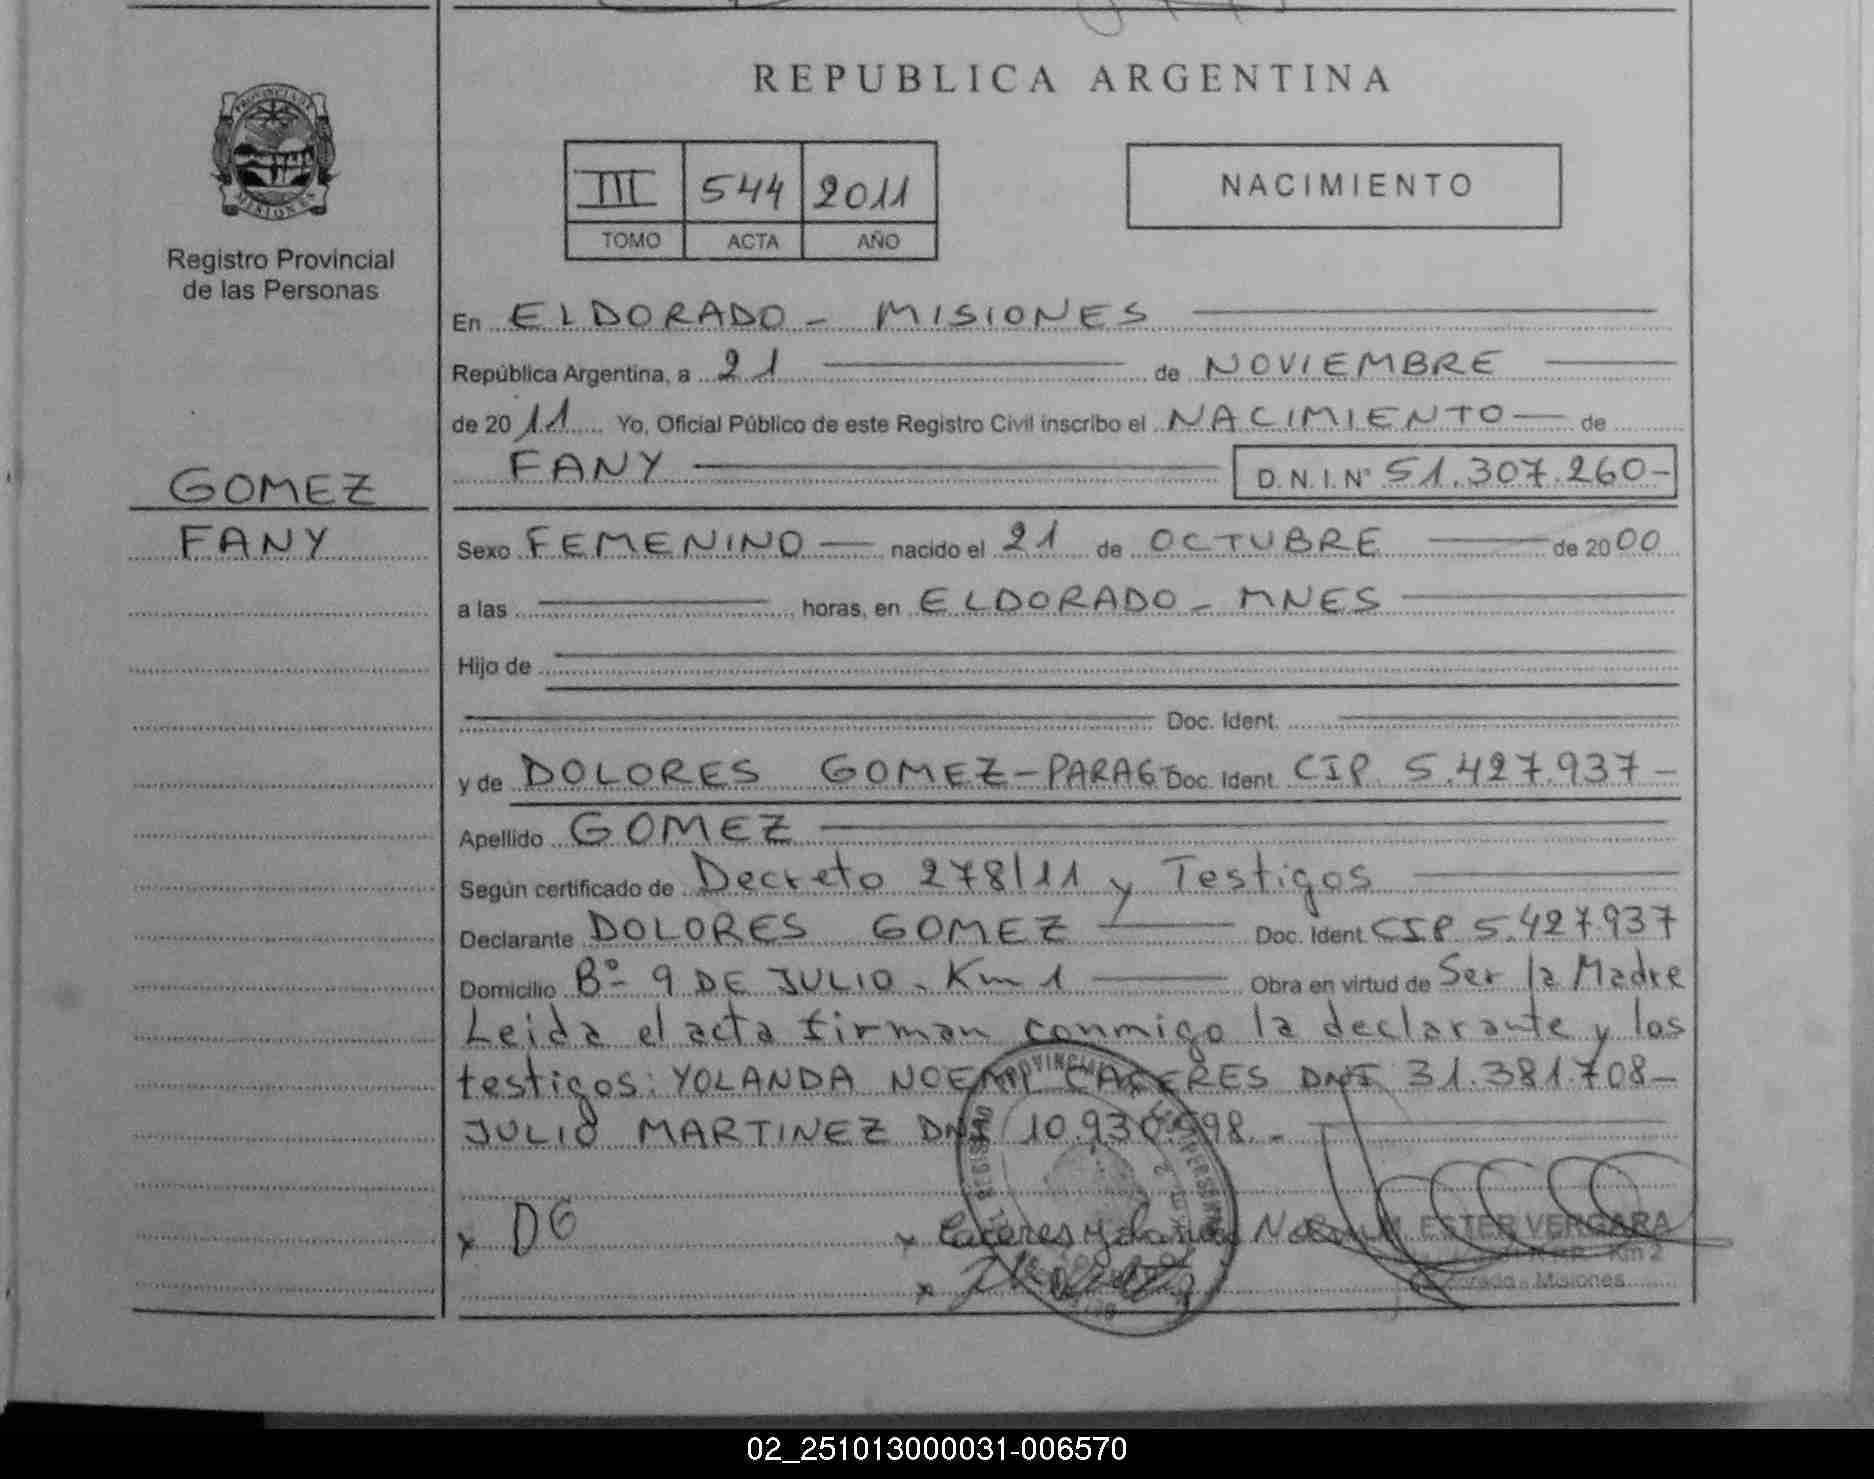 REPUBLICA ARGENTINA
PROVINCIA DE
MISIONES
Registro Provincial
de las Personas
III 544 2011
TOMO ACTA AÑO
NACIMIENTO
En ELDORADO - MISIONES
República Argentina, a 21 de NOVIEMBRE
de 2011 Yo, Oficial Público de este Registro Civil inscribo el NACIMIENTO de
FANY D.N.I. Nº 51.307.260-
GOMEZ
FANY
Sexo FEMENINO nacido el 21 de OCTUBRE de 2000
a las horas, en ELDORADO - MNES
Hijo de
Doc. Ident.
y de DOLORES GOMEZ-PARAG Doc. Ident. CIP 5.427.937-
Apellido GOMEZ
Según certificado de Decreto 278/11 y Testigos
Declarante DOLORES GOMEZ Doc. Ident. CIP 5.427.937
Domicilio Bº 9 DE JULIO - Km 1 Obra en virtud de Ser la Madre
Leida el acta firman conmigo la declarante y los
testigos: YOLANDA NOEMI CACERES DNI 31.381.708-
JULIO MARTINEZ DNI
x DG x Caceres Yolanda
x
ESTER VERGARA
Km 2
Misiones
02_251013000031-006570